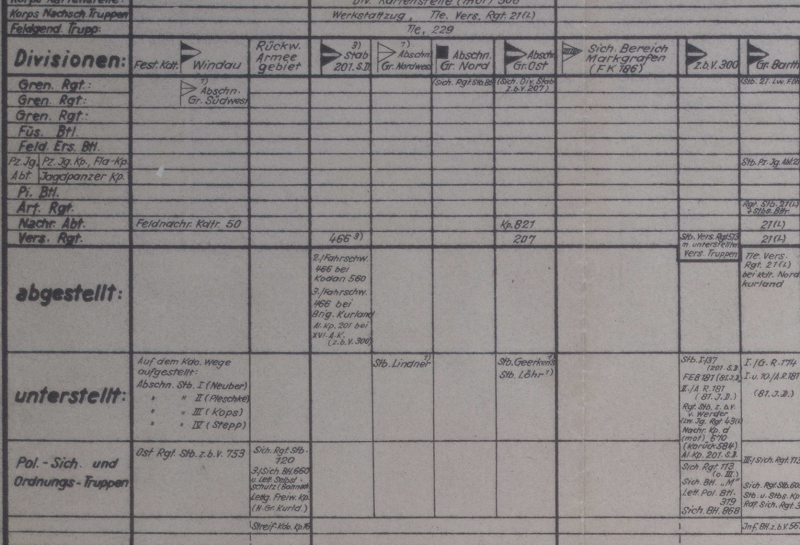 Div. Kartenstelle (mot) 500
Korps Nachsch. Truppen
Werkstattzug, Tle. Vers. Rgt. 21(L)
Feldgend. Trupp:
Tle, 229
Divisionen:
Fest. Kdt. Windau
Rückw.
Armee
gebiet
3)
Stab
201. S.D
1)
Abschn.
Gr. Nordwest
Abschn.
Gr. Nord
Abschn
Gr. Ost
Sich. Bereich
Markgrafen
(FK 186)
z.b.V. 300
Gr. Barth
Gren. Rgt.:
1)
Abschn.
Gr. Südwest
(Sich. Div. Stab
z.b.V. 207)
Gren. Rgt:
Gren. Rgt:
Füs. Btl.
Feld. Ers. Btl.
Pz. Jg. Abt
Pz. Jg. Kp., Fla-Kp.
Jagdpanzer Kp.
Stb. Pz. Jg. Abt. 21
Pi. Btl.
Art. Rgt.
Rgt. Stb. 21(L)
Nachr. Abt.
Feldnachr. Kdtr. 50
Kp. 821
21(L)
Vers. Rgt.
466 3)
207
Stb. Vers. Rgt
m. unterstellten
Vers. Truppen
21(L)
abgestellt:
2./Fahrschw.
466 bei
Kodan 560
3./Fahrschw.
466 bei
Brig. Kurland
Al. Kp. 201 bei
XVI. A.K.
(z.b.V. 300)
Tle. Vers.
Rgt. 21(L)
bei Kdt. Nord
kurland
unterstellt:
Auf dem Kdo. Wege
aufgestellt:
Abschn. Stb. I (Neuber)
" " II (Pleschke)
" " III (Kops)
" " IV (Stepp)
Stb. Lindner 1)
Stb. Geerkens
Stb. Löhr 1)
Stb. I./37
(201. S.D.
FEB 181 (81. J.D.)
II./A.R. 181
(81. J.D.)
Rgt. Stb. z.b.V.
v. Werder
Nachr. Kp. d
(mot), 670
(Korück 584)
Al. Kp. 201. S.D.
I./G.R. 174
I. u. 10./A.R. 181
(81. J.D.)
Pol.-Sich. und
Ordnungs-Truppen
Ost Rgt. Stb. z.b.V. 753
Sich. Rgt. Stb.
3./Sich. Btl. 660
u. Lett. Selbst
schutz
Lettg. Freiw. Kp.
(H. Gr. Kurld.)
Streif-Kdo. Kp. 16
Sich. Rgt. 113
(o. III.)
Sich. Btl. „M"
Lett. Pol. Btl.
319
Sich. Btl. 868
III./Sich. Rgt. 113
Stb. u. Stbs. Kp
Inf. Btl. z.b.V. 56